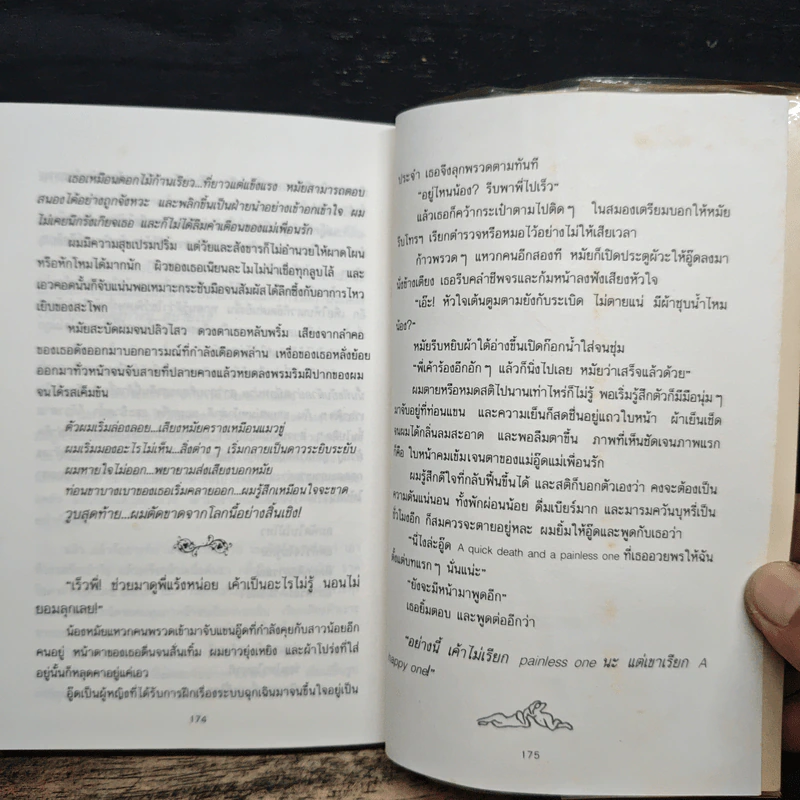 เธอเหมือนดอกไม้ก้านเรียว...ที่ยาวแต่แข็งแรง หมัยสามารถตอบ
สนองได้อย่างถูกจังหวะ และพลิกขึ้นเป็นฝ่ายนำอย่างเข้าอกเข้าใจ ผม
ไม่เคยนึกรังเกียจเธอ และก็ไม่ได้ลืมคำเตือนของแม่เพื่อนรัก
ผมมีความสุขเปรมปริ่ม แต่วัยและสังขารก็ไม่อำนวยให้ผาดโผน
หรือหักโหมได้มากนัก ผิวของเธอเนียนละไมไม่น่าเชื่อทุกลูบไล้ และ
เอวคอดนั้นก็จับแน่นพอเหมาะกระชับมือจนสัมผัสได้ลึกซึ้งกับอาการไหว
เยิบของสะโพก
หมัยสะบัดผมจนปลิวไสว ดวงตาเธอหลับพริ้ม เสียงจากลำคอ
ของเธอดังออกมาบอกอารมณ์ที่กำลังเดือดพล่าน เหงื่อของเธอหลั่งย้อย
ออกมาทั่วหน้าจนจับสายที่ปลายคางแล้วหยดลงพรมริมฝีปากของผม
จนได้รสเค็มข้น
ตัวผมเริ่มล่องลอย...เสียงหมัยครางเหมือนแมวขู่
ผมเริ่มมองอะไรไม่เห็น...สิ่งต่าง ๆ เริ่มกลายเป็นดาวระยิบระยับ
ผมหายใจไม่ออก...พยายามส่งเสียงบอกหมัย
ท่อนขาบางเบาของเธอเริ่มคลายออก...ผมรู้สึกเหมือนใจจะขาด
วูบสุดท้าย...ผมตัดขาดจากโลกนี้อย่างสิ้นเชิง!
"เร็วพี่! ช่วยมาดูพี่แร้งหน่อย เค้าเป็นอะไรไม่รู้ นอนไม่
ยอมลุกเลย!"
น้องหมัยแหวกคนพรวดเข้ามาจับแขนอู๊ดที่กำลังคุยกับสาวน้อยอีก
คนอยู่ หน้าตาของเธอตื่นจนสั่นเทิ้ม ผมยาวยุ่งเหยิง และผ้าโปร่งที่ใส่
อยู่นั้นก็หลุดคาอยู่แค่เอว
อู๊ดเป็นผู้หญิงที่ได้รับการฝึกเรื่องระบบฉุกเฉินมาจนขึ้นใจอยู่เป็น
174
ประจำ เธอจึงลุกพรวดตามทันที
"อยู่ไหนน้อง? รีบพาพี่ไปเร็ว"
แล้วเธอก็คว้ากระเป๋าตามไปติด ๆ ในสมองเตรียมบอกให้หมัย
รีบโทรฯ เรียกตำรวจหรือหมอไว้อย่างไม่ให้เสียเวลา
ก้าวพรวด ๆ แหวกคนอีกสองที หมัยก็เปิดประตูผัวะให้อู๊ดลงมา
นั่งข้างเตียง เธอรีบคลำชีพจรและก้มหน้าลงฟังเสียงหัวใจ
"เอ๊ะ! หัวใจเต้นตูมตามยังกับระเบิด ไม่ตายแน่ มีผ้าชุบน้ำไหม
น้อง?"
หมัยรีบหยิบผ้าใต้อ่างขึ้นเปิดก๊อกน้ำใส่จนชุ่ม
"พี่เค้าร้องอีกอัก ๆ แล้วก็นิ่งไปเลย หมัยว่าเสร็จแล้วด้วย"
ผมตายหรือหมดสติไปนานเท่าไหร่ก็ไม่รู้ พอเริ่มรู้สึกตัวก็มีมือนุ่ม ๆ
มาจับอยู่ที่ท่อนแขน และความเย็นก็สดชื่นอยู่แถวใบหน้า ผ้าเย็นเช็ด
จนผมได้กลิ่นลมสะอาด และพอลืมตาขึ้น ภาพที่เห็นชัดเจนภาพแรก
ก็คือ ใบหน้าคมเข้มเจนตาของแม่อู๊ดแม่เพื่อนรัก
ผมรู้สึกดีใจที่กลับฟื้นขึ้นได้ และสติก็บอกตัวเองว่า คงจะต้องเป็น
ความดันแน่นอน ทั้งพักผ่อนน้อย ดื่มเบียร์มาก และมารมควันบุหรี่เป็น
ชั่วโมงอีก ก็สมควรจะตายอยู่หละ ผมยิ้มให้อู๊ดและพูดกับเธอว่า
"นี่ไงล่ะอู๊ด A quick death and a painless one ที่เธออวยพรให้ฉัน
ตั้งแต่บทแรก ๆ นั่นแน่ะ"
"ยังจะมีหน้ามาพูดอีก"
เธอยิ้มตอบ และพูดต่ออีกว่า
"อย่างนี้ เค้าไม่เรียก painless one นะ แต่เขาเรียก A
happy one!"
175